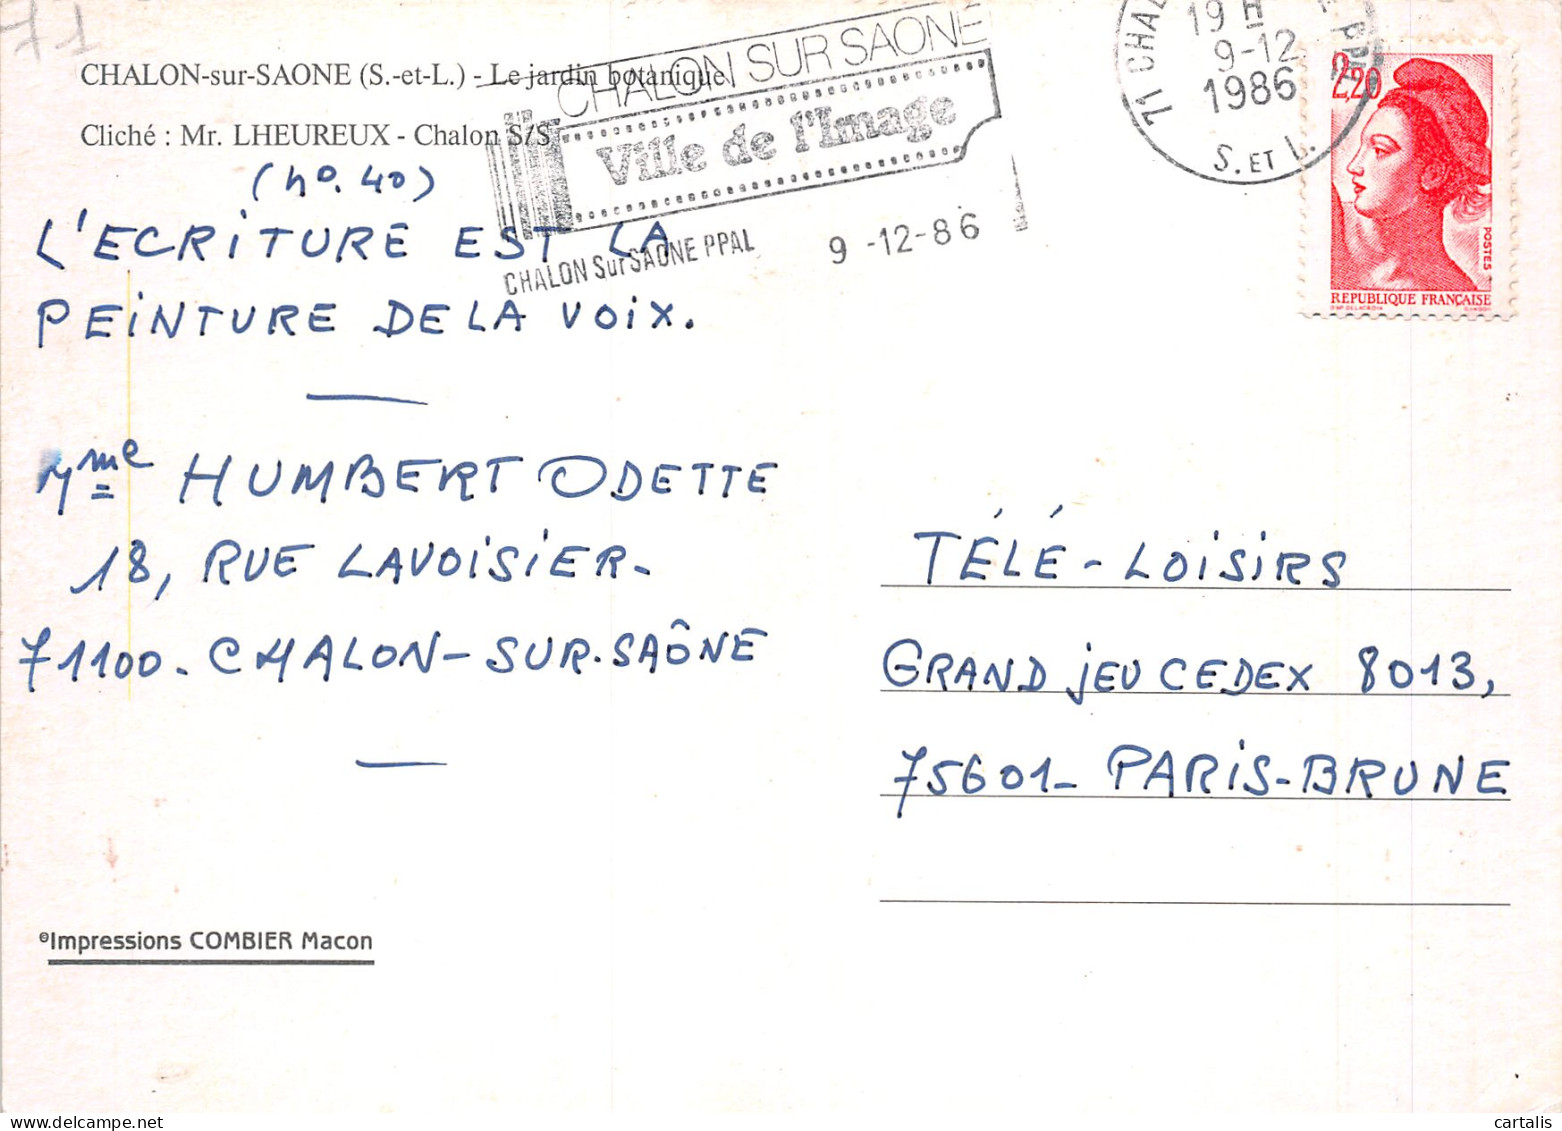 71
CHALON-sur-SAONE (S.-et-L.) - Le jardin botanique
Cliché : Mr. LHEUREUX - Chalon S/S
(no. 40)
L'ECRITURE EST LA
PEINTURE DE LA VOIX.
Mme HUMBERT ODETTE
18, RUE LAVOISIER-
71100- CHALON-SUR-SAÔNE
©Impressions COMBIER Macon
CHALON SUR SAONE
Ville de l'Image
CHALON Sur SAONE PPAL 9 -12-86
71 CHAL
PPAL
19 H
9-12
1986
S. ET L.
2,20
POSTES
REPUBLIQUE FRANÇAISE
TÉLÉ-LOISIRS
GRAND JEU CEDEX 8013,
75601- PARIS-BRUNE
cartalis